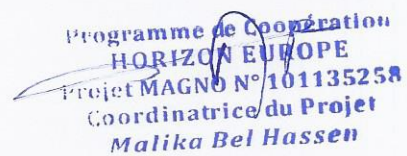 Programme de Coopération
HORIZON EUROPE
Projet MAGNO N° 101135258
Coordinatrice du Projet
Malika Bel Hassen